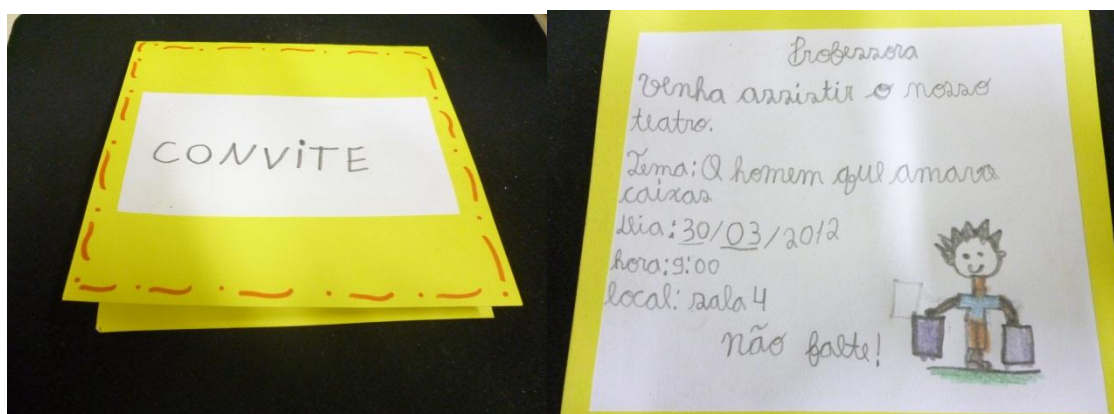 CONVITE
Professora
Venha assistir o nosso
teatro.
Tema: O homem que amava
caixas
Dia: 30/03/2012
hora: 9:00
local: sala 4
não falte!